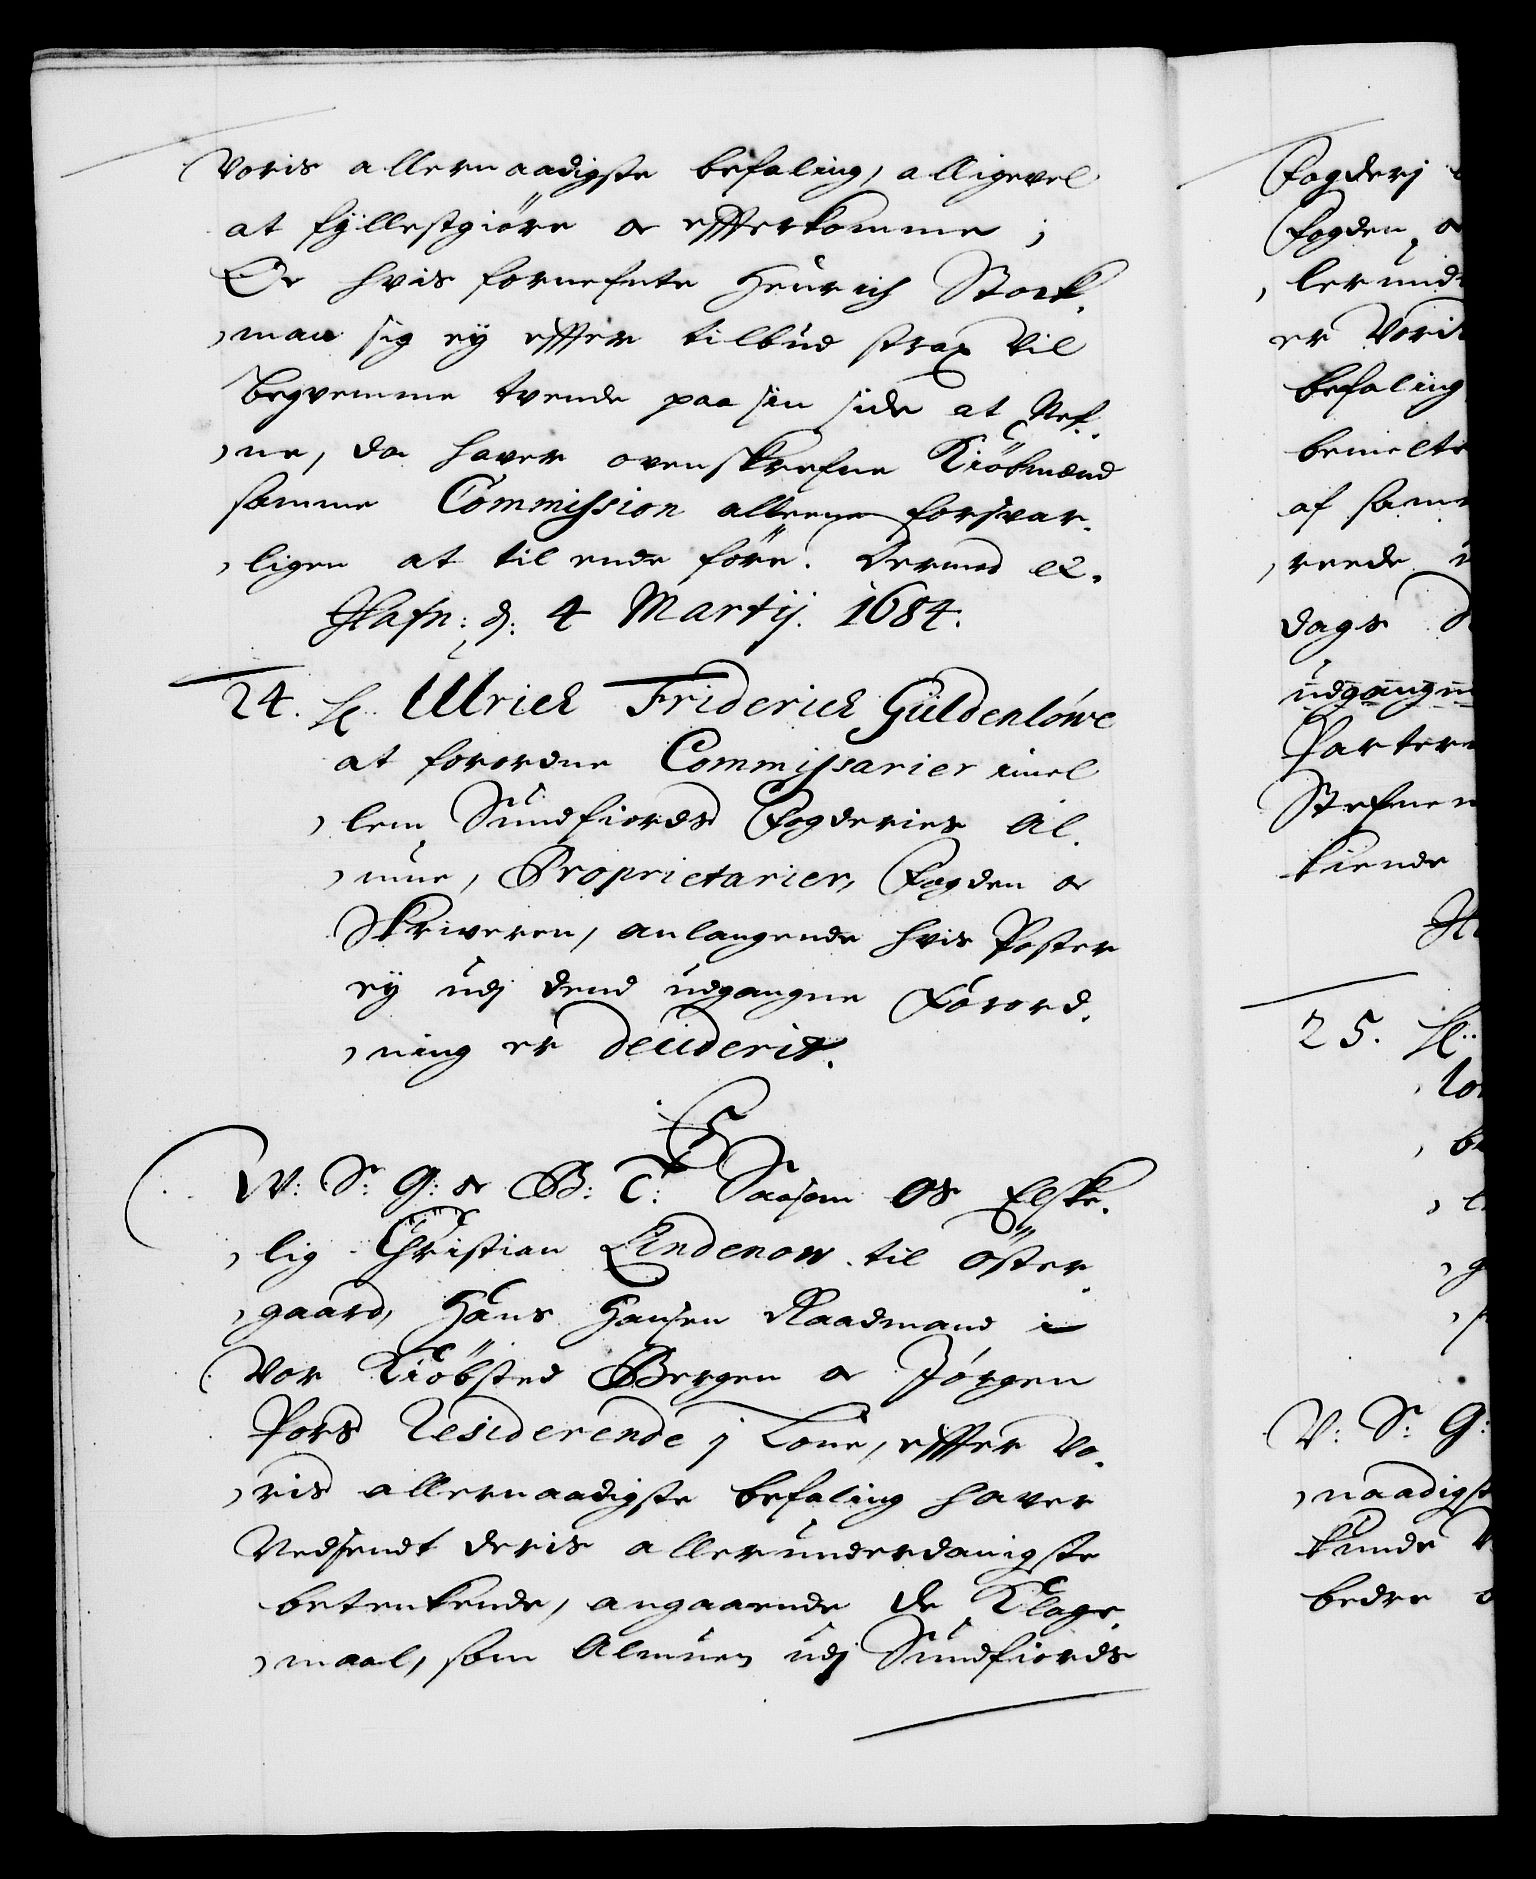 Voris allernaadigste befaling, alligevel
at fyllestgiöre oc efterkomme;
Oc hvis fornefnte Henrich Stock-
man sig ey efter tilbud strax vil
beqvemme tvende paa sin side at Nef-
ne, da haver ovenskrefne Kiöbmænd
samme Commission alleene forsvar-
ligen at til ende före. Dermed etc.
Hafn: d: 4 Martij. 1684.
24. Ulrich Friderich Güldenlöwe
at forordne Commissarier imel
lem Sundfiords Fogderies Al-
mue, Proprietarier, Fogden oc
Skriveren, anlangende hvis Poster
ey udj dend udgangne Forord-
ning er deciderit.
C5
V: S: G: oc B: T: Saasom OS Elske-
lig Christian Lindenow til Öster-
gaard, Hans Hansen Raadmand i
Vor Kiöbsted Bergen oc Jörgen
Pors Residerende j Lone, efter Vo-
ris allernaadigste befaling haver
Nedsendt deris allerunderdanigste
betenkende, angaaende de Klage-
maal, som Almuen udj Sundfiords
Fogderj
Fogden oc
lerund
er Voris
befaling
bemelte
af sam
reede
dags
udgangne
Parter
Stefne
kiende
25.
V: S: G:
naadigst
kunde
bedre